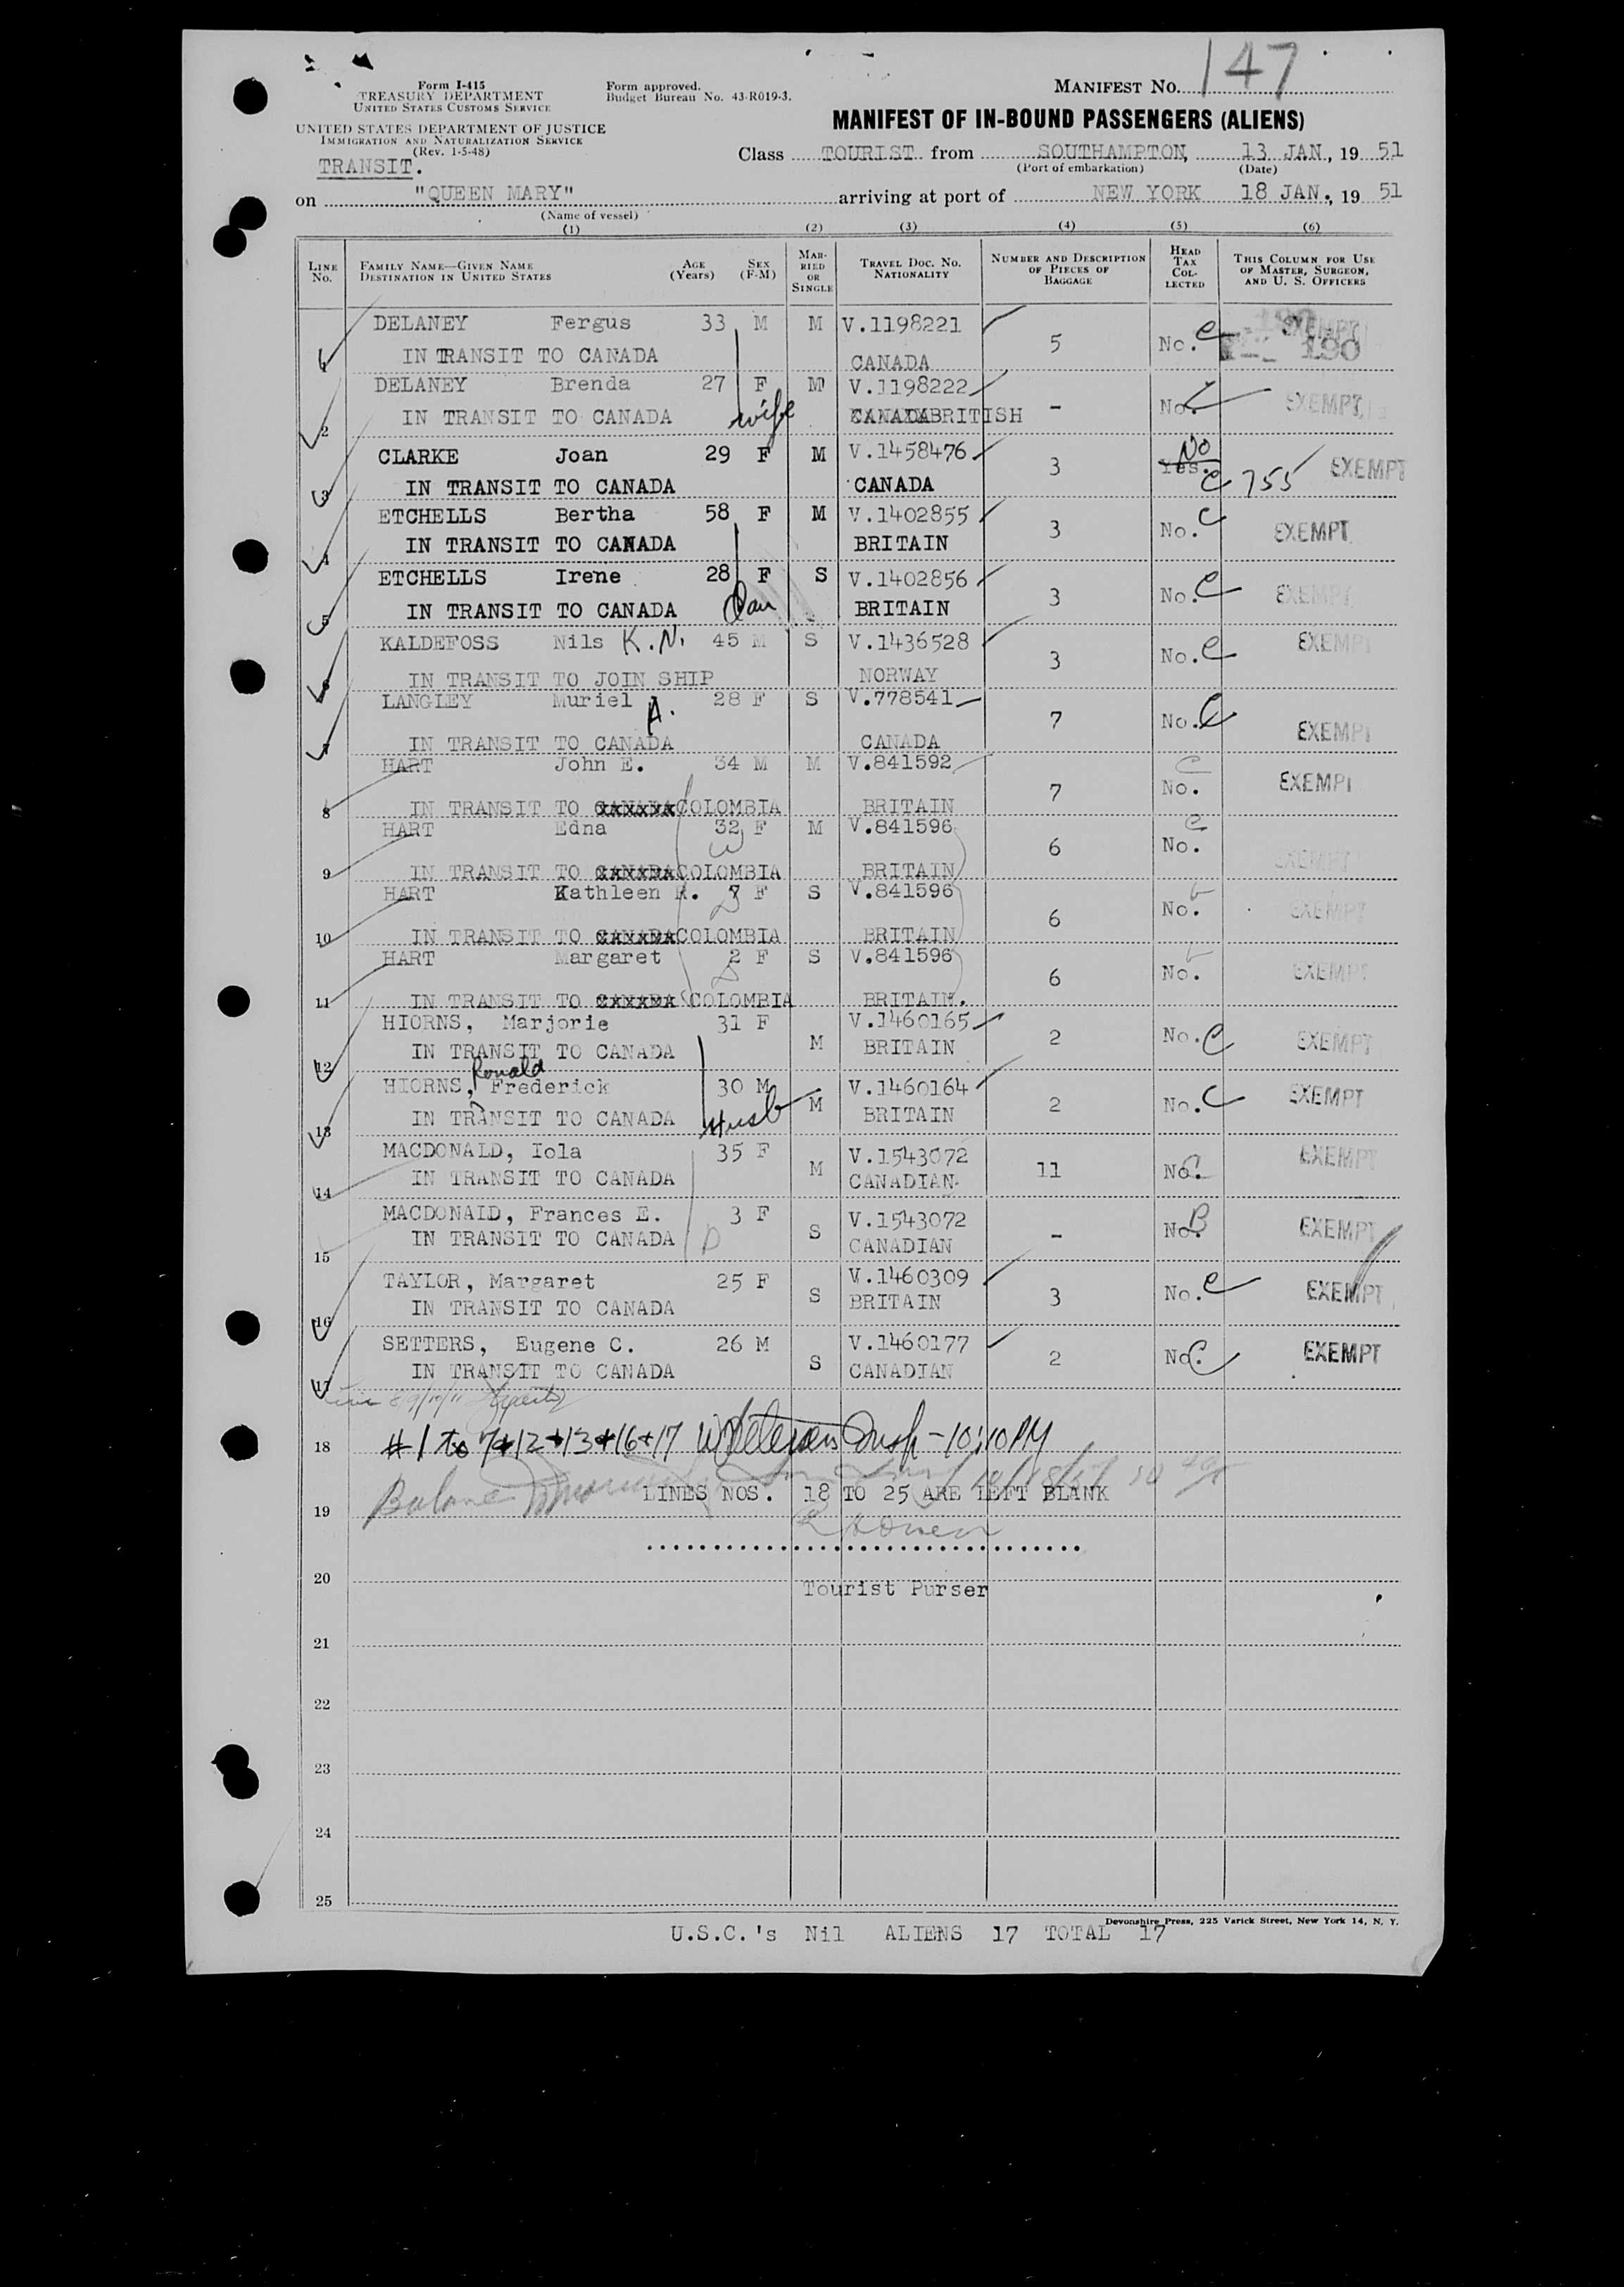 147
Form I-415
TREASURY DEPARTMENT
UNITED STATES CUSTOMS SERVICE
Form approved.
Budget Bureau No. 43-R019-3.
MANIFEST NO.
UNITED STATES DEPARTMENT OF JUSTICE
IMMIGRATION AND NATURALIZATION SERVICE
(Rev. 1-5-48)
MANIFEST OF IN-BOUND PASSENGERS (ALIENS)
TRANSIT.
Class TOURIST from SOUTHAMPTON, 13 JAN, 19 51
(Port of embarkation) (Date)
on "QUEEN MARY" arriving at port of NEW YORK 18 JAN., 19 51
(Name of vessel)
(1) (2) (3) (4) (5) (6)
LINE No. FAMILY NAME—GIVEN NAME DESTINATION IN UNITED STATES AGE (Years) SEX (F-M) MARRIED OR SINGLE TRAVEL DOC. NO. NATIONALITY NUMBER AND DESCRIPTION OF PIECES OF BAGGAGE HEAD TAX COLLECTED THIS COLUMN FOR USE OF MASTER, SURGEON, AND U. S. OFFICERS
1 DELANEY Fergus 33 M M V.1198221 5 No. C EXEMPT 190
IN TRANSIT TO CANADA CANADA
2 DELANEY Brenda 27 F wife M V.1198222 - No. EXEMPT
IN TRANSIT TO CANADA CANADA BRITISH
3 CLARKE Joan 29 F M V.1458476 3 Yes. No C 755 EXEMPT
IN TRANSIT TO CANADA CANADA
4 ETCHELLS Bertha 58 F M V.1402855 3 No. C EXEMPT
IN TRANSIT TO CANADA BRITAIN
5 ETCHELLS Irene 28 F Dau S V.1402856 3 No. C EXEMPT
IN TRANSIT TO CANADA BRITAIN
6 KALDEFOSS Nils K.N. 45 M S V.1436528 3 No. C EXEMPT
IN TRANSIT TO JOIN SHIP NORWAY
7 LANGLEY Muriel A. 28 F S V.778541 7 No. C EXEMPT
IN TRANSIT TO CANADA CANADA
8 HART John E. 34 M M V.841592 7 No. C EXEMPT
IN TRANSIT TO CANADA COLOMBIA BRITAIN
9 HART Edna 32 F W M V.841596 6 No. C EXEMPT
IN TRANSIT TO CANADA COLOMBIA BRITAIN
10 HART Kathleen R. 7 F D S V.841596 6 No. EXEMPT
IN TRANSIT TO CANADA COLOMBIA BRITAIN
11 HART Margaret 2 F D S V.841596 6 No. EXEMPT
IN TRANSIT TO CANADA COLOMBIA BRITAIN.
12 HIORNS, Marjorie 31 F M V.1460165 2 No. C EXEMPT
IN TRANSIT TO CANADA BRITAIN
13 HIORNS, Ronald Frederick 30 M Husb M V.1460164 2 No. C EXEMPT
IN TRANSIT TO CANADA BRITAIN
14 MACDONALD, Iola 35 F M V.1543072 11 No. C EXEMPT
IN TRANSIT TO CANADA CANADIAN
15 MACDONALD, Frances E. 3 F D S V.1543072 - No. B EXEMPT
IN TRANSIT TO CANADA CANADIAN
16 TAYLOR, Margaret 25 F S V.1460309 3 No. C EXEMPT
IN TRANSIT TO CANADA BRITAIN
17 SETTERS, Eugene C. 26 M S V.1460177 2 No. C EXEMPT
IN TRANSIT TO CANADA CANADIAN
18 #1 to 7+12+13+16+17 Insp-10:10PM
19 LINES NOS. 18 TO 25 ARE LEFT BLANK
20 Tourist Purser
21
22
23
24
25
Devonshire Press, 225 Varick Street, New York 14, N. Y.
U.S.C.'s Nil ALIENS 17 TOTAL 17